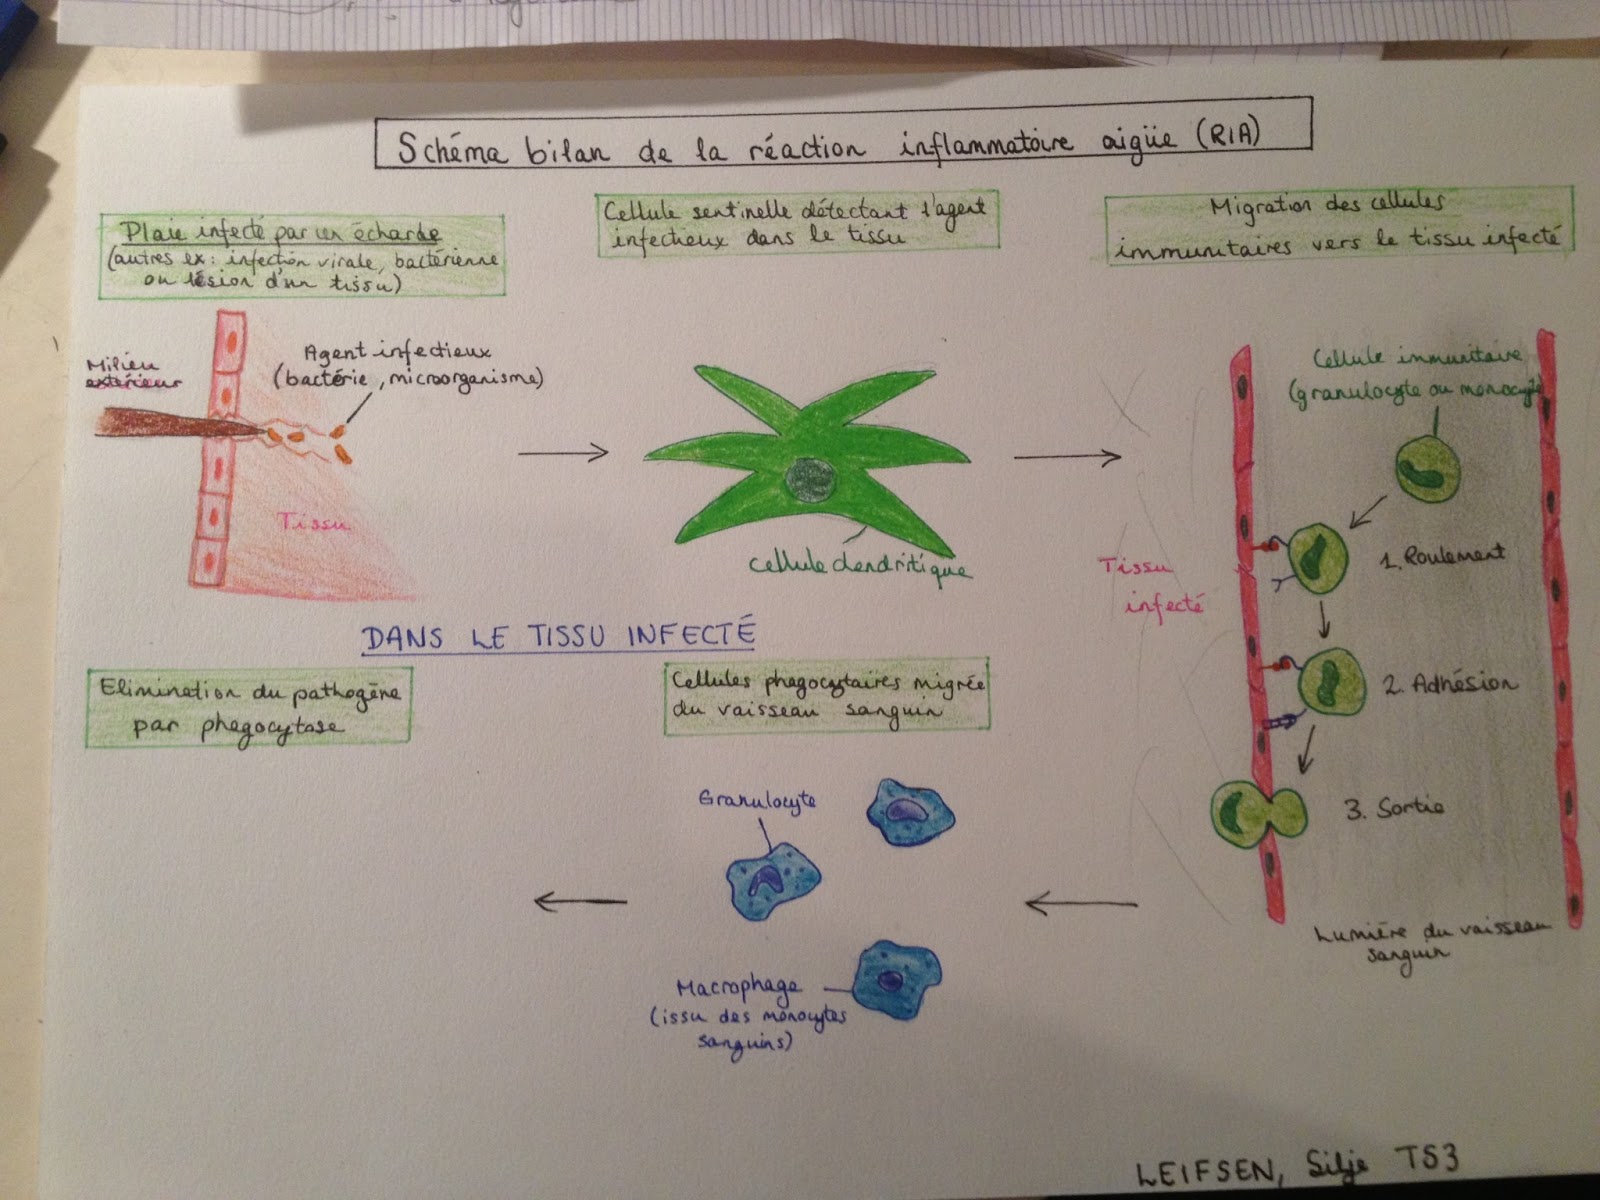 Schéma bilan de la réaction inflammatoire aigüe (RIA)
Plaie infecté par un écharde
(autres ex: infection virale, bactérienne
ou lésion d'un tissu)
Cellule sentinelle détectant l'agent
infectieux dans le tissu
Migration des cellules
immunitaires vers le tissu infecté
Milieu
extérieur
Agent infectieux
(bactérie, microorganisme)
Tissu
Cellule dendritique
Cellule immunitaire
(granulocyte ou monocyte)
1. Roulement
Tissu
infecté
2. Adhésion
3. Sortie
Lumière du vaisseau
sanguin
DANS LE TISSU INFECTÉ
Elimination du pathogène
par phagocytose
Cellules phagocytaires migrée
du vaisseau sanguin
Granulocyte
Macrophage
(issu des monocytes
sanguins)
LEIFSEN, Silje TS3